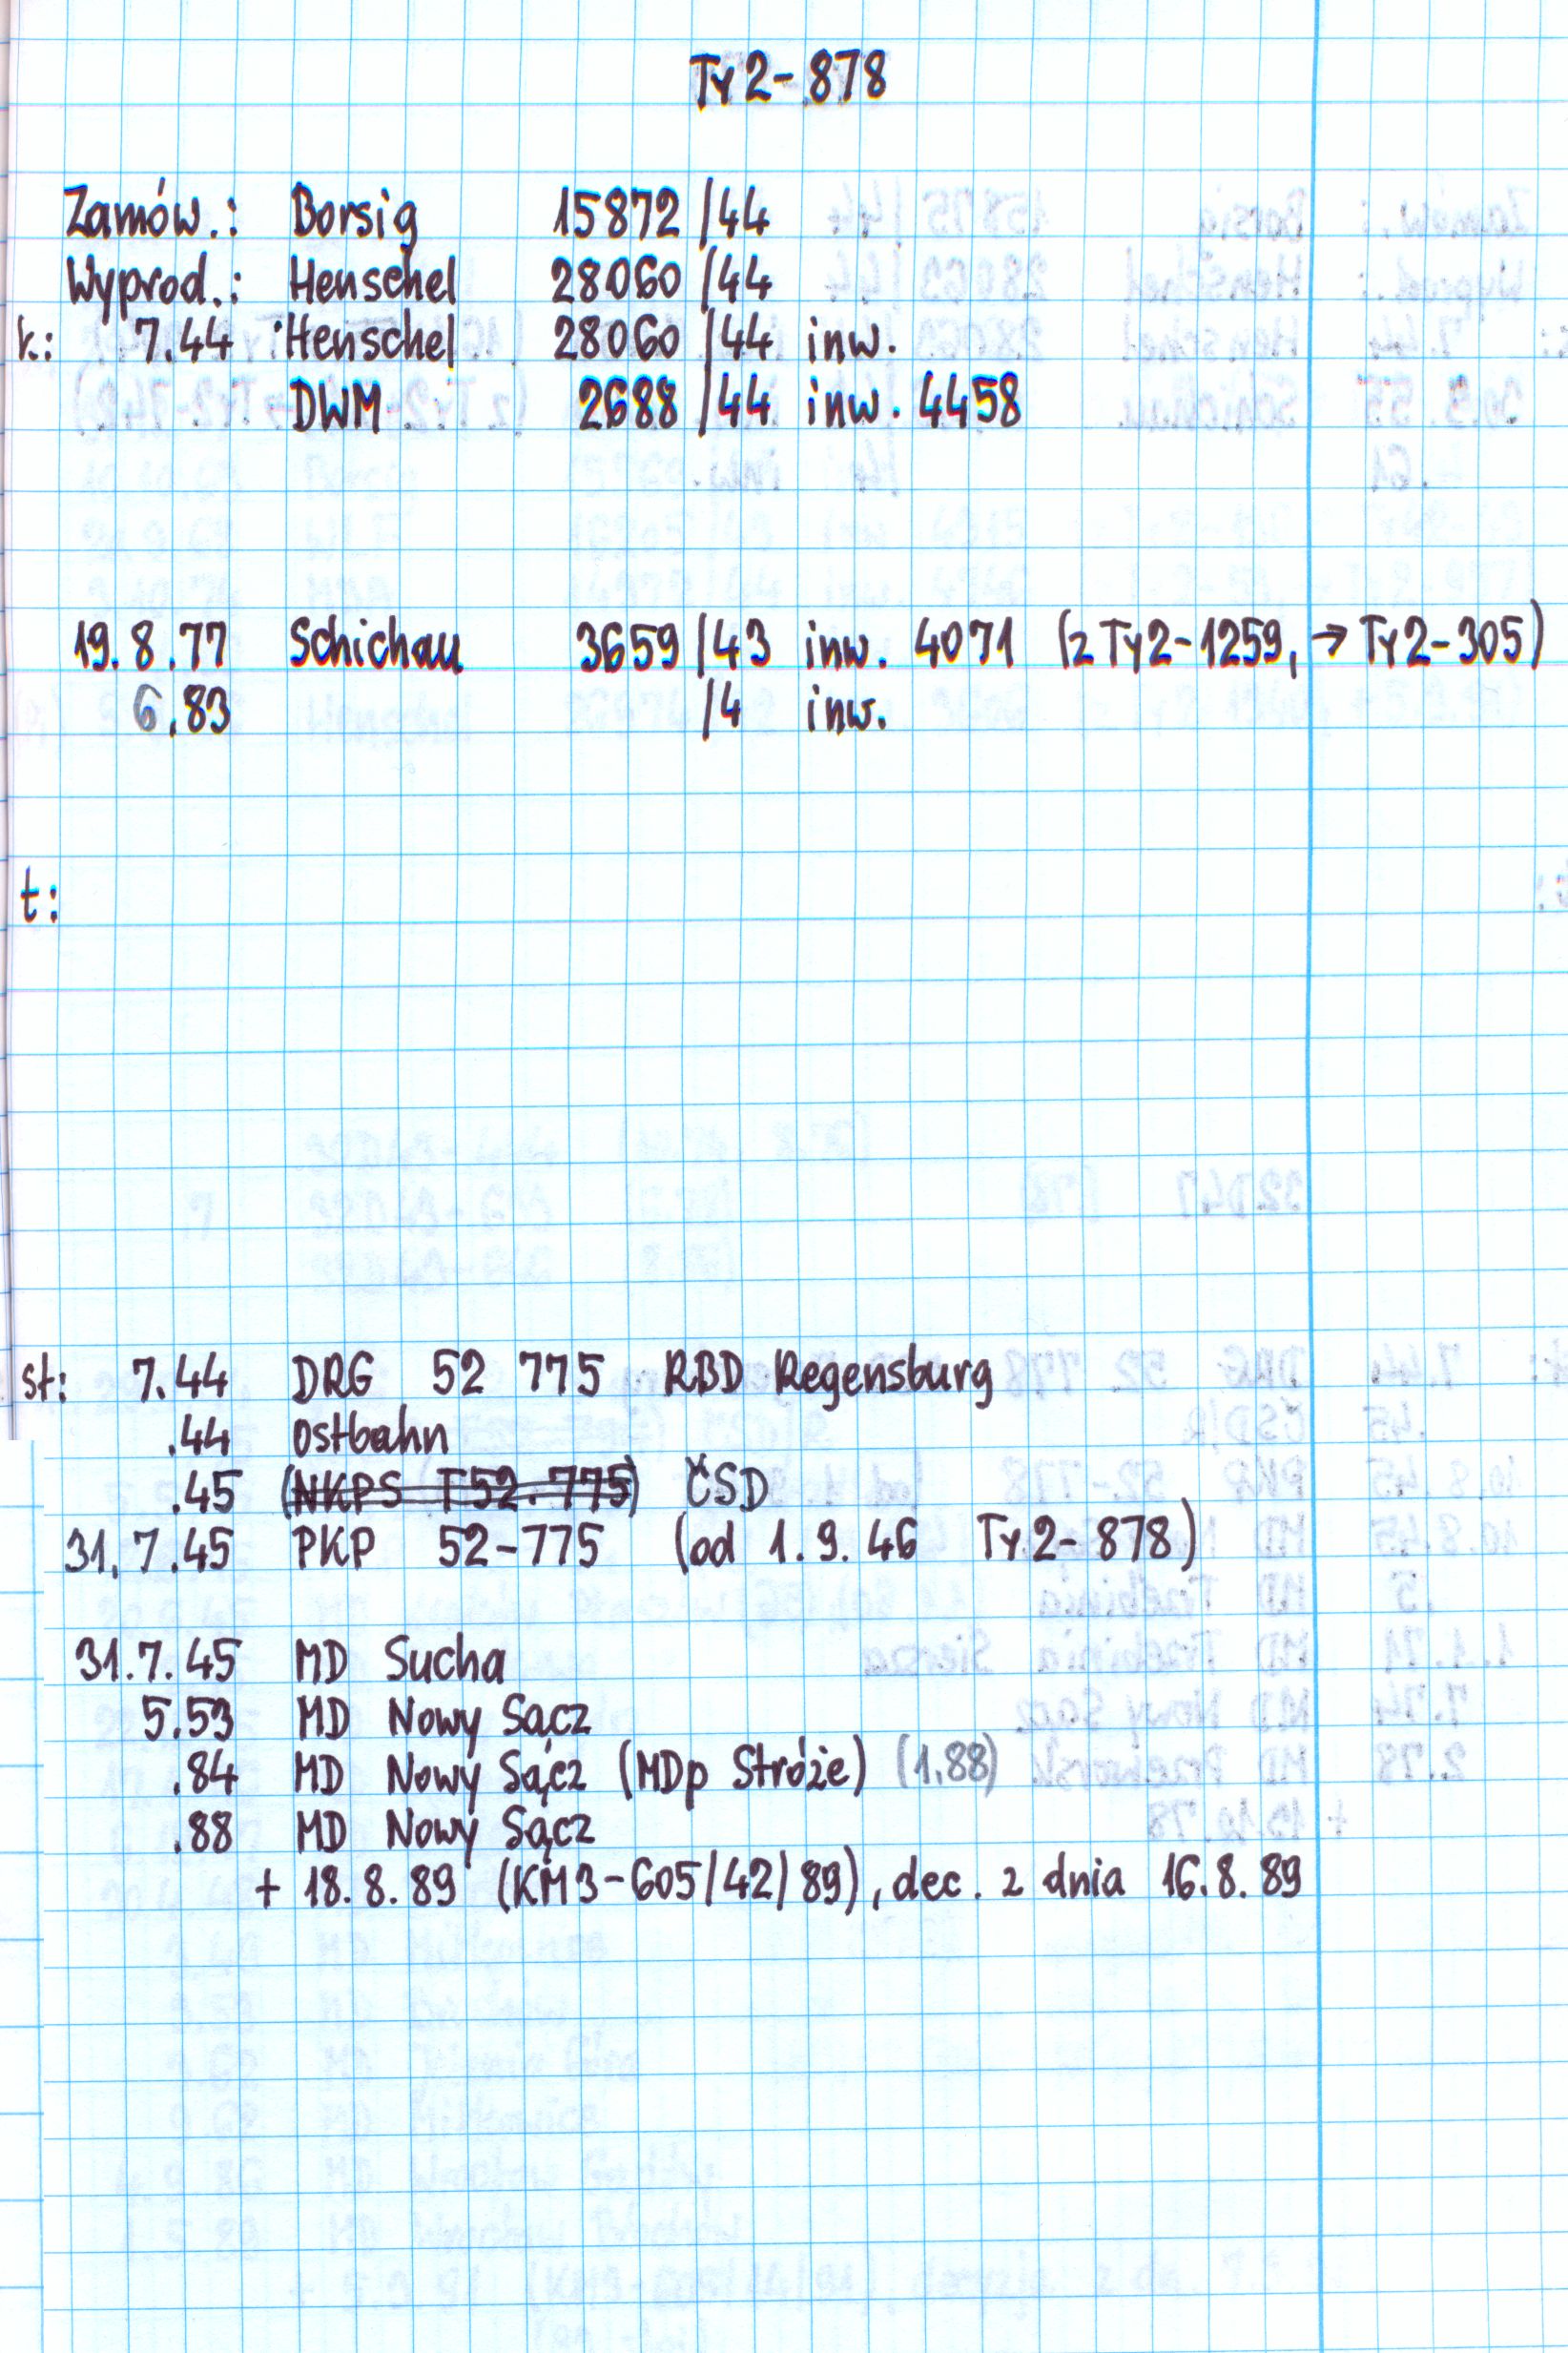 Ty2-878
Zamów.: Borsig 15872/44
Wyprod.: Henschel 28060/44
k.: 7.44 Henschel 28060/44 inw.
DWM 2688/44 inw. 4458
19.8.77 Schichau 3659/43 inw. 4071 (z Ty2-1259, → Ty2-305)
6.83 /4 inw.
t:
st: 7.44 DRG 52 775 RBD Regensburg
.44 Ostbahn
.45 (NKPS T52.775) ČSD
31.7.45 PKP 52-775 (od 1.9.46 Ty2-878)
31.7.45 MD Sucha
5.53 MD Nowy Sącz
.84 MD Nowy Sącz (MDp Stróże) (1.88)
.88 MD Nowy Sącz
+ 18.8.89 (KM3-605/42/89), dec. z dnia 16.8.89